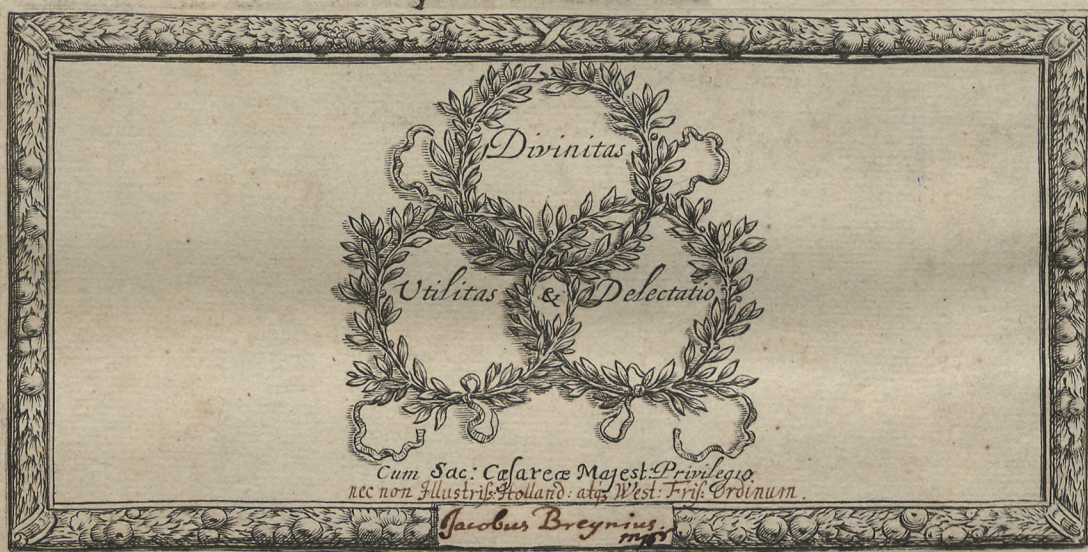 Divinitas
Utilitas & Delectatio
Cum Sac: Cæsareæ Majest: Privilegio.
nec non Illustriſs: Holland: atq; West: Friſ: Ordinum.
Jacobus Breynius.